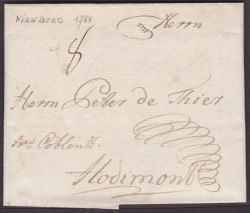 NURNBERG 1784
Herrn
8
Herrn Peter de Thier
pr Coblentz
Hodimont